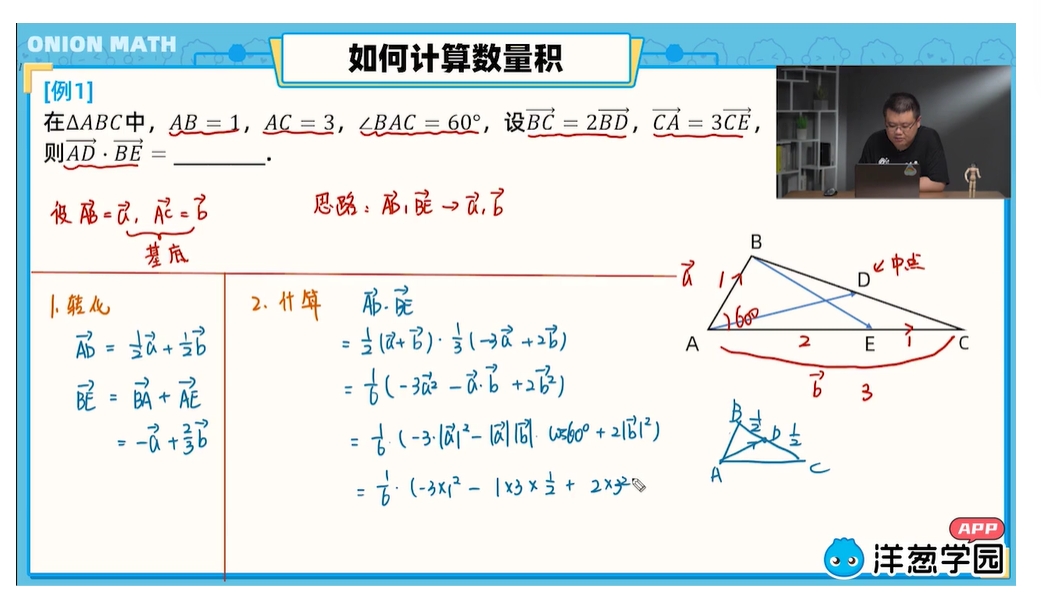 ONION MATH
如何计算数量积
[例1]
在ΔABC中，AB = 1，AC = 3，∠BAC = 60°，设\overrightarrow{BC} = 2\overrightarrow{BD}，\overrightarrow{CA} = 3\overrightarrow{CE}，
则\overrightarrow{AD} · \overrightarrow{BE} = ________．
设 \overrightarrow{AB} = \vec{a}, \overrightarrow{AC} = \vec{b}
基底
思路: \overrightarrow{AD}, \overrightarrow{BE} → \vec{a}, \vec{b}
1. 转化
\overrightarrow{AD} = \frac{1}{2}\vec{a} + \frac{1}{2}\vec{b}
\overrightarrow{BE} = \overrightarrow{BA} + \overrightarrow{AE}
= -\vec{a} + \frac{2}{3}\vec{b}
2. 计算 \overrightarrow{AD} · \overrightarrow{BE}
= \frac{1}{2}(\vec{a} + \vec{b}) · \frac{1}{3}(-3\vec{a} + 2\vec{b})
= \frac{1}{6}(-3\vec{a}^2 - \vec{a}·\vec{b} + 2\vec{b}^2)
= \frac{1}{6}·(-3·|\vec{a}|^2 - |\vec{a}||\vec{b}|· cos60° + 2|\vec{b}|^2)
= \frac{1}{6}·(-3×1^2 - 1×3×\frac{1}{2} + 2×3^2
B
\vec{a} 1 D ← 中点
60°
A 2 E 1 C
\vec{b} 3
B \frac{1}{2} D \frac{1}{2}
A C
APP
洋葱学园